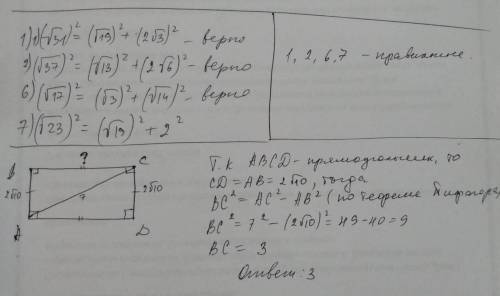 1) 1) (√31)² = (√19)² + (2√3)² - верно
2) (√37)² = (√13)² + (2√6)² - верно
6) (√17)² = (√3)² + (√14)² - верно
7) (√23)² = (√19)² + 2²
1, 2, 6, 7 - правильные.
B ? C
2√10 7 2√10
A D
Т.к ABCD - прямоугольник, то
CD = AB = 2√10, тогда
BC² = AC² - AB² (по теореме Пифагора)
BC² = 7² - (2√10)² = 49 - 40 = 9
BC = 3
Ответ: 3